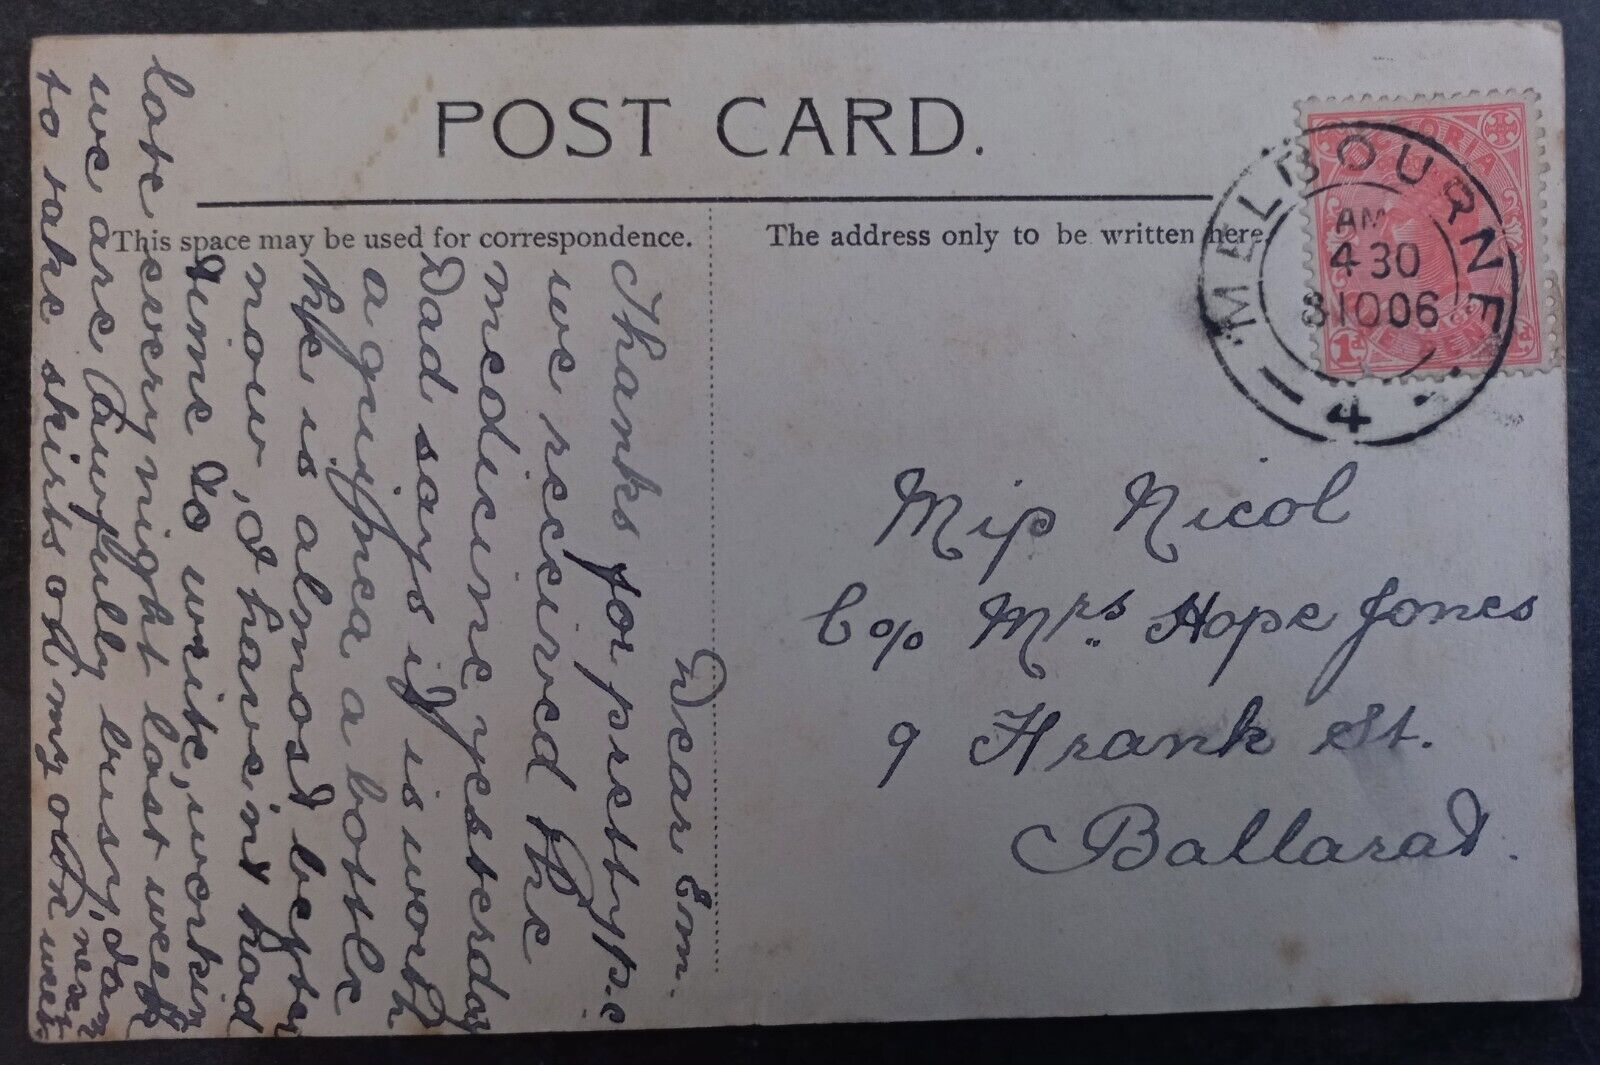 POST CARD.
This space may be used for correspondence.
The address only to be written here.
VICTORIA
1d
MELBOURNE
AM
4 30
8 10 06
4
Miss Nicol
C/o Mrs. Hope Jones
9 Frank St.
Ballarat.
Dear Em.
Thanks for pretty p.c
we received the
medicine yesterday
Dad says it is worth
a guinea a bottle
he is almost better
now, I haven't had
time to write, workin
late every night last week
we are awfully busy,
to take skirts on my own next week